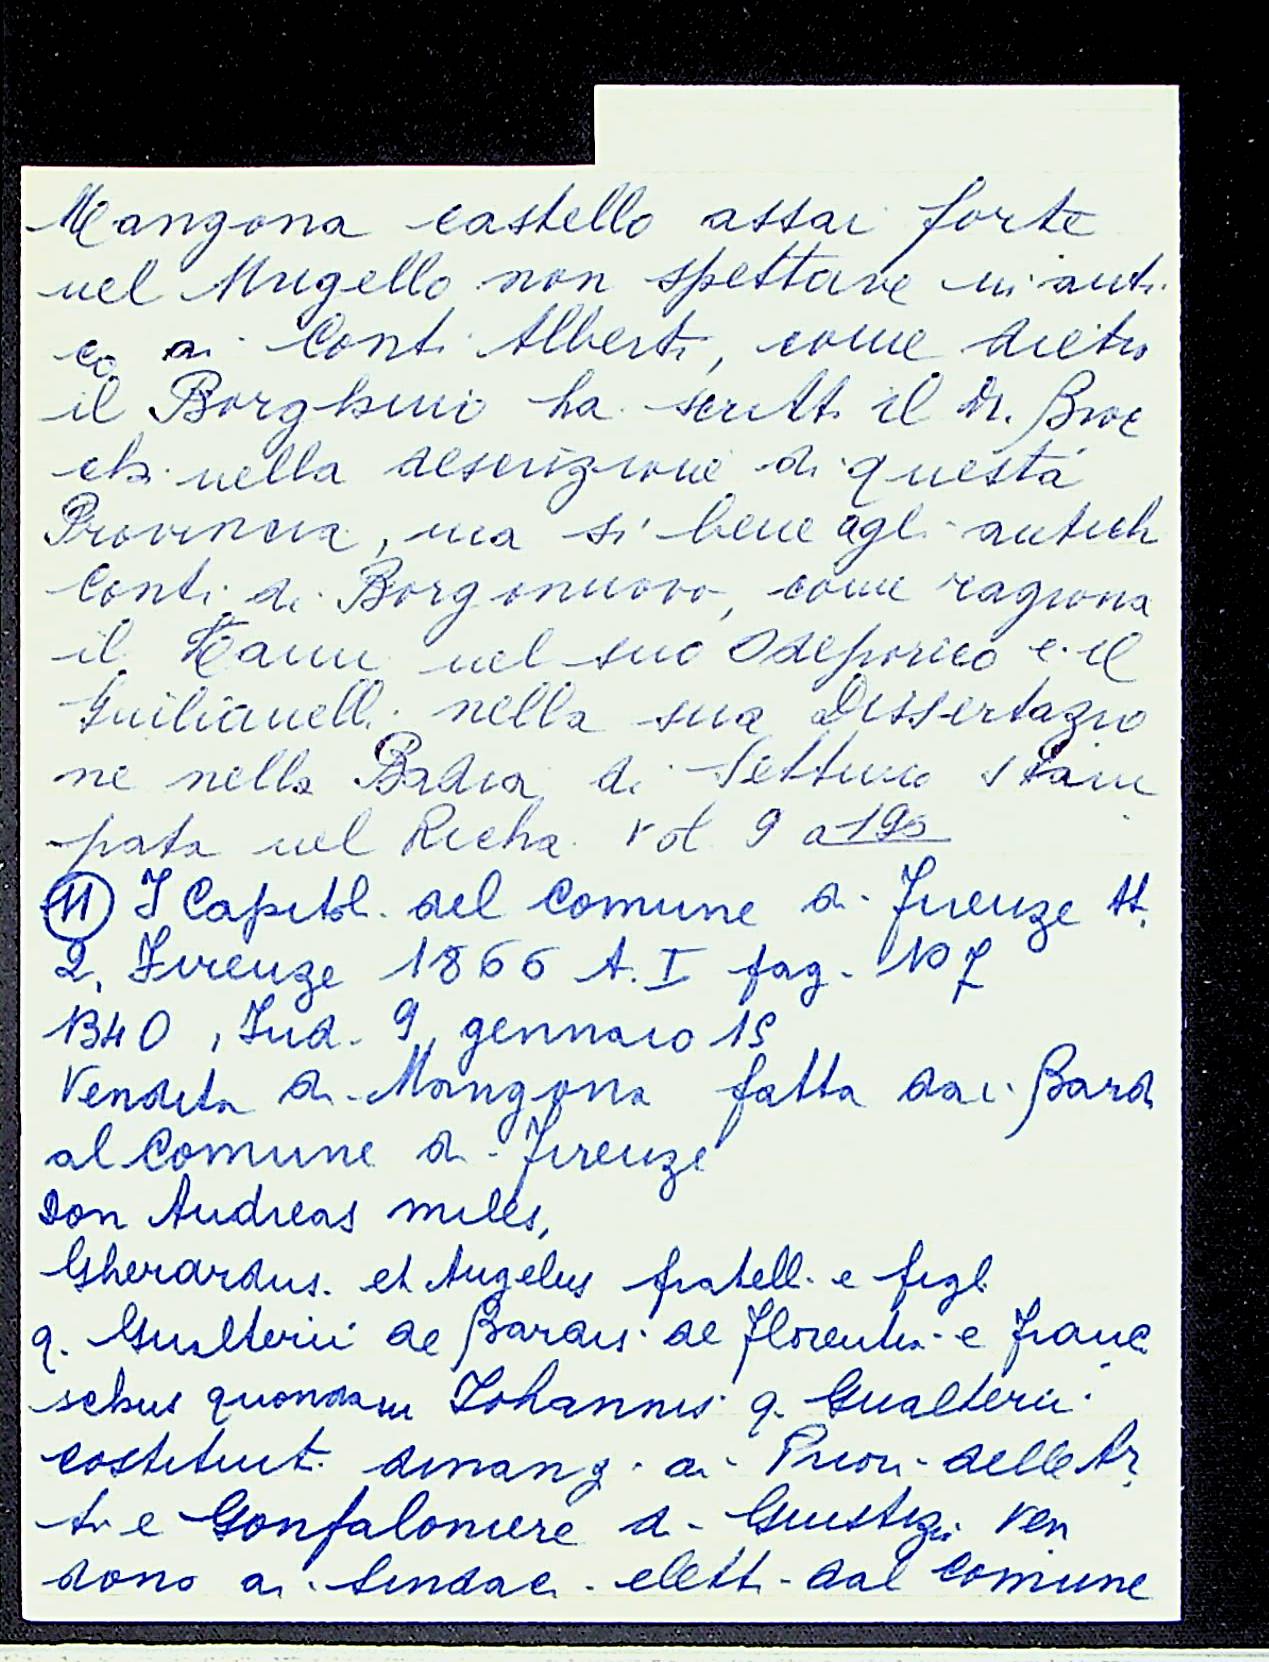 Mangona castello assai forte
nel Mugello non spettava in anti
co ai Conti Alberti, come dietro
il Borghini ha scritto il Dr. Broc
chi nella descrizione di questa
Provincia, ma si bene agli antichi
Conti di Borgonuovo, come ragiona
il Manni nel suo Odeporico e il
Guilianelli nella sua Dissertazio
ne nella Badia di Settimo stam
pata nel Richa vol 9 a 190
(11) I Capitoli del Comune di Firenze tt.
2, Firenze 1866 t. I pag. 107
1340, Ind. 9, gennaio 15
Vendita di Mangona fatta dai Bardi
al Comune di Firenze
Don Andreas miles,
Gherardus et Angelus fratelli e figli
q. Gualterii de Bardis de Florentia e Franc
schus quondam Iohannis q. Gualterii
costituiti dinanzi ai Priori delle Ar
ti e Gonfaloniere di Giustizia ven
dono ai Sindaci eletti dal Comune